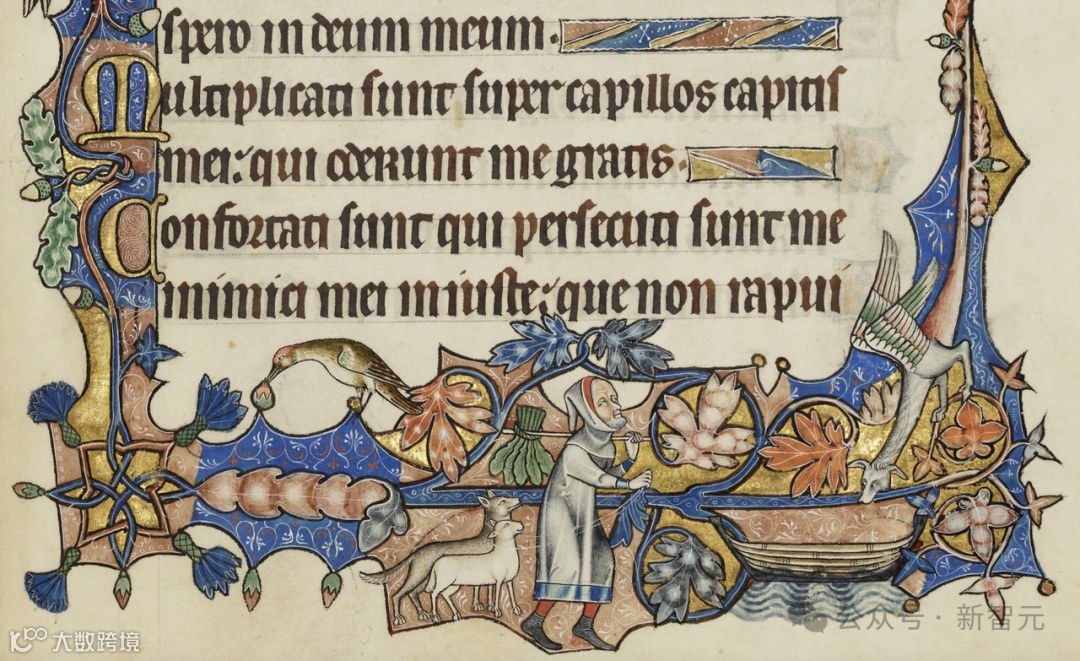 spero in deum meum.
Multiplicati sunt super capillos capitis
mei: qui oderunt me gratis.
Confortati sunt qui persecuti sunt me
inimici mei iniuste: que non rapui
公众号 · 新智元
大数跨境